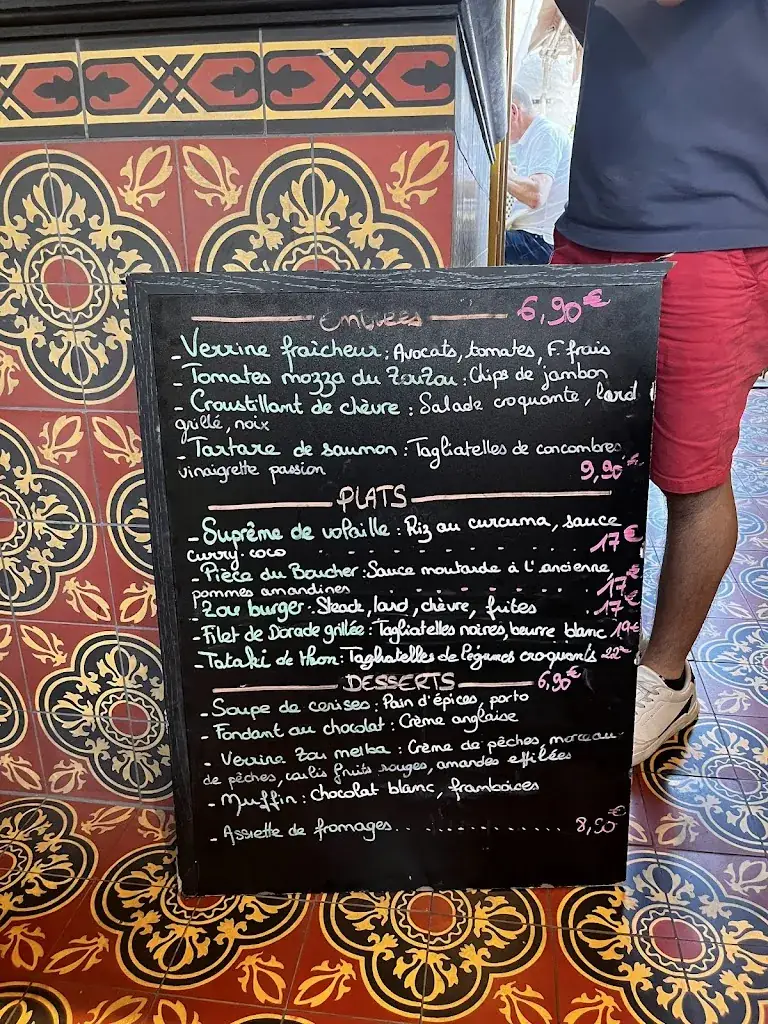 Entrées 6,90€
- Verrine fraîcheur : Avocats, tomates, F. frais
- Tomates mozza du ZouZou : Chips de jambon
- Croustillant de chèvre : Salade croquante, lard
grillé, noix
- Tartare de saumon : Tagliatelles de concombres
vinaigrette passion 9,90€
PLATS
- Suprême de volaille : Riz au curcuma, sauce
curry-coco - - - - - - - - - - 17€
- Pièce du Boucher : Sauce moutarde à l'ancienne,
pommes amandines - - - - - - - 17€
- Zou burger : Steack, lard, chèvre, frites - - - 17€
- Filet de Dorade grillée : Tagliatelles noires, beurre blanc 19€
- Tataki de thon : Tagliatelles de légumes croquants 22€
DESSERTS 6,90€
- Soupe de cerises : Pain d'épices, porto
- Fondant au chocolat : Crème anglaise
- Verrine Zou melba : Crème de pêches, morceau
de pêches, coulis fruits rouges, amandes effilées
- Muffin : chocolat blanc, framboises
- Assiette de fromages. . . . . . . . . . . . . . . 8,50€